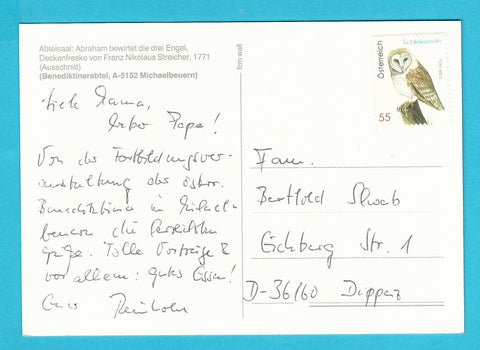 Abteisaal: Abraham bewirtet die drei Engel,
Deckenfresko von Franz Nikolaus Streicher, 1771
(Ausschnitt)
(Benediktinerabtei, A-5152 Michaelbeuern)
Österreich
Schleiereule
55
Liebe Mama,
lieber Papa!
Von der Fortbildungsver-
anstaltung der österr.
Benediktiner in Michael-
beuern die herzlichsten
Grüße. Tolle Vorträge &
vor allem: gutes Essen!
Euer Reinhold
Fam.
Berthold
Eichberg Str. 1
D-36160 Dipperz